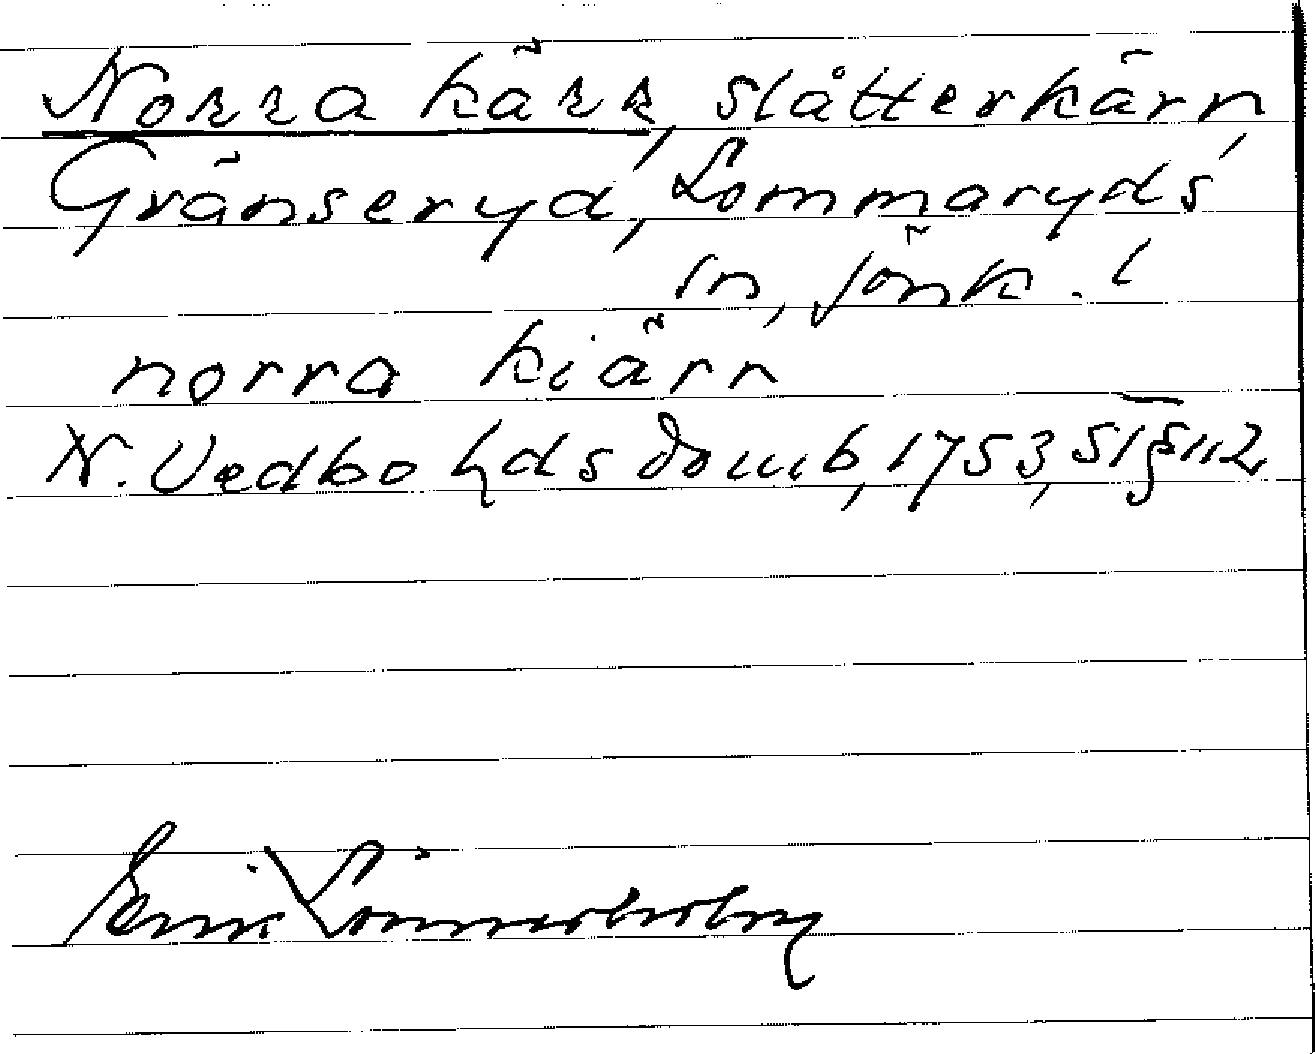 Norra kärr, slåtterkärr,
Gränseryd, Lommaryds
sn, Jönk. l
norra kiärr
N. Vedbo hds domb, 1753, St § 112